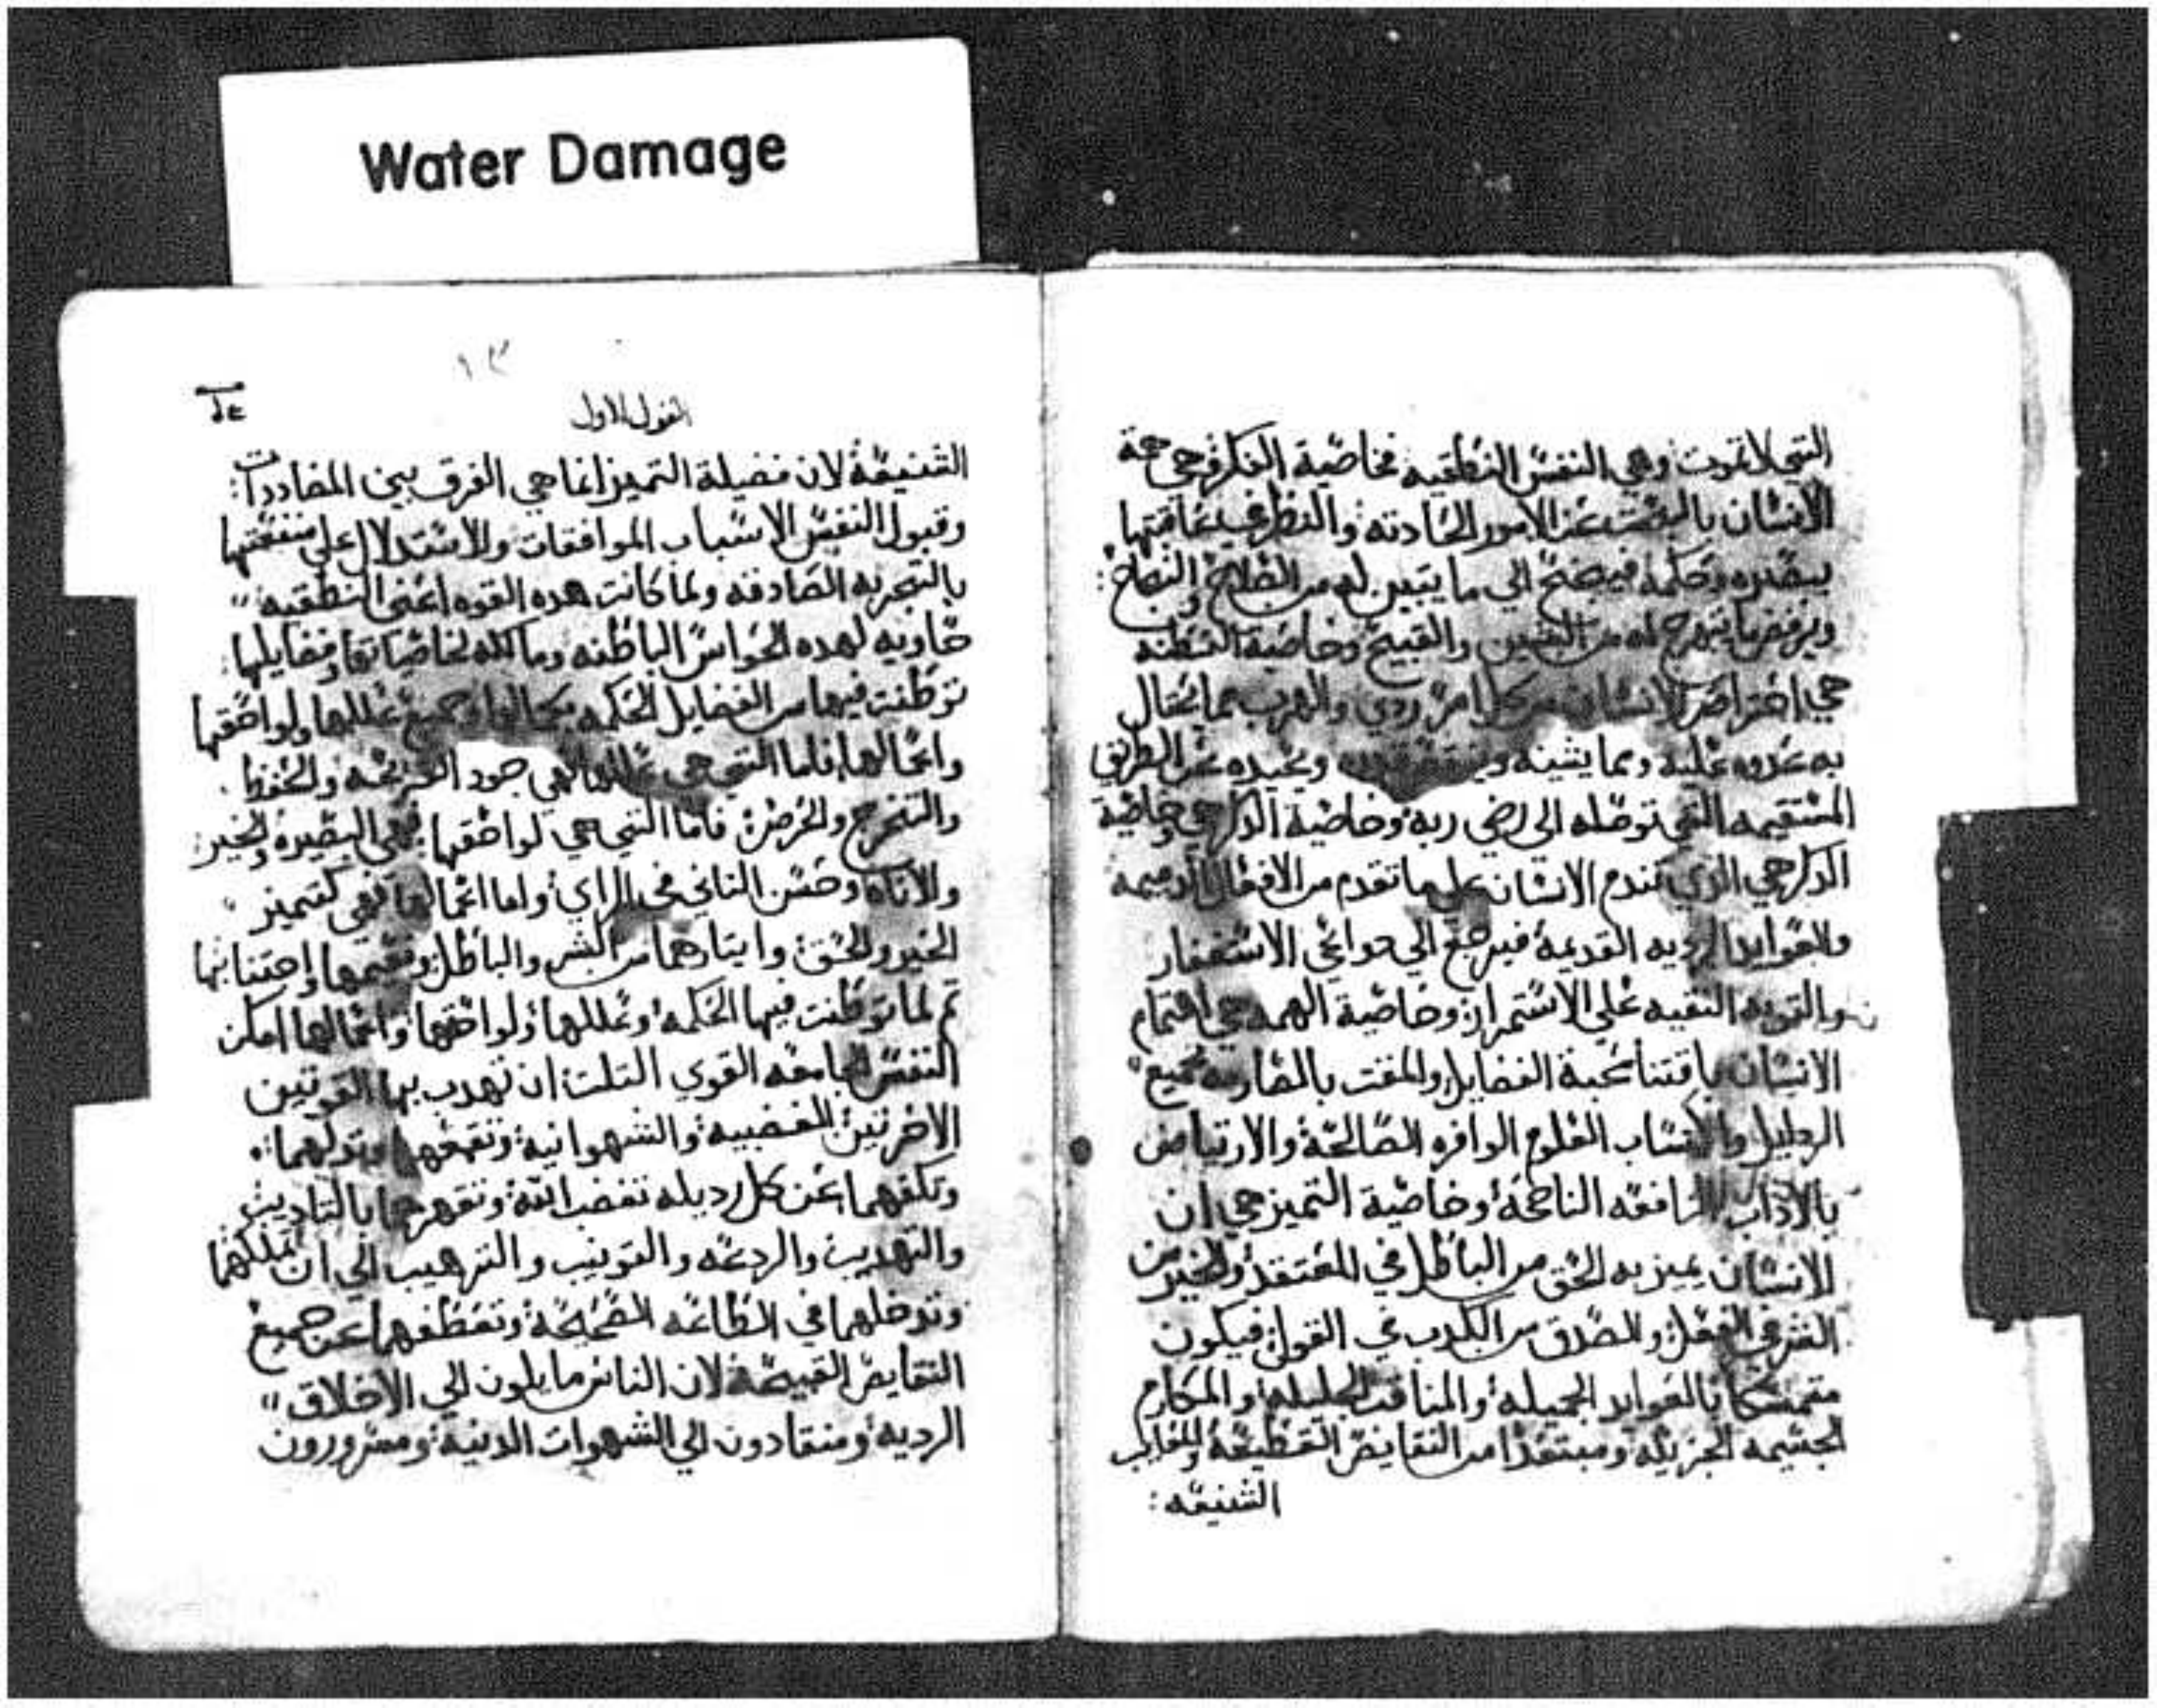 Water Damage
التي لا تموت وهي النفس النطقيه فخاصية الفكر هي حجة
الانسان بالبحث عن الامور الحادته والنظر في عاقبتها
ببصيره وحكمة فيجنح الي ما يتبين له من الصلاح والنجاح:
ويرفض ما يتبهرج له من الشين والقبيح وخاصية الفطنه
هي احتراص الانسان من كل امر ردي والهرب مما يحتال
به عدوه عليه ومما يشينه ويحيده عن الطريق
المستقيمه التي توصله الي رضي ربه وخاصية الذكر هي خاصية
الذكر هي الذي تندم الانسان علي ما تقدم من الافعال الدميمه
والعوايد الرديه القديمة فيرجع الي دواعي الاستغفار
والتوبه النقيه علي الاستمرار وخاصية الهمه هي اهتمام
الانسان باقتنا محبة الفضايل والمقت بالمضاربه لجميع
الردايل والاكتساب العلوم الوافره الصالحة والارتياض
بالاداب النافعه الناجحة وخاصية التميز هي ان
الانسان يميز به الحق من الباطل في المعتقد والخير من
الشر في الفعل والصدق من الكدب في القول فيكون
متمسكا بالعوايد الجميله والمناقب الجليله والمكارم
الجسيمه الجزيله ومبتعدا من النقايص الفظيحة والمعايب
الشنيعه:
١٣
القول الاول
الشنيعة لان فضيلة التميز انما هي الفرق بين المضاددات:
وقبول النفس الاسباب الموافقات والاستدلال علي منفعتها
بالتجربه الصادقه ولما كانت هده القوه اعني النطقيه"
حاويه لهده الحواس الباطنه ومالكه لخاصياتها وفضايلها:
توطنت فيها من الفضايل الحكمه بكمالها وجميع عللها ولواحقها
واعمالها فاما التي هي عللها فهي جود القريحه والحفظ.
والتخرج والحرص فاما التي هي لواحقها فهي البصيره والخير
والاناه وحسن التاني في الراي واما اعمالها فهي كتميز
الخير والحق وايتارهما من الشر والباطل واجتنابها
تم لما توطنت فيها الحكمه وعللها ولواحقها واعمالها امكن
النفس الجامعه القوي التلت ان تهدب بها القوتين
الاخرتين الغضبيه والشهوانية وتقمعهما وتدلهما.
وتكفهما عن كل رديله تغضب الله وتقهرهما بالتاديب
والتهديب والردعه والتوبيب والترهيب الي ان تملكهما
وتدخلهما في الطاعه الصحيحة وتعطفهما عن جميع
النقايص القبيحة لان الناس مايلون الي الاخلاق"
الرديه ومنقادون الي الشهوات الدنيه ومسرورون